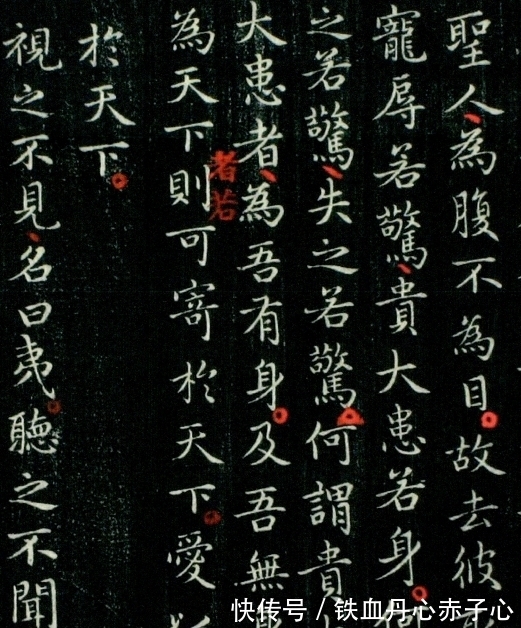 聖人為腹不為目故去彼
寵辱若驚貴大患若身
之若驚失之若驚何謂貴
大患者為吾有身及吾無
者若
為天下則可寄於天下愛
於天下
視之不見名曰夷聽之不聞
快传号 / 铁血丹心赤子心